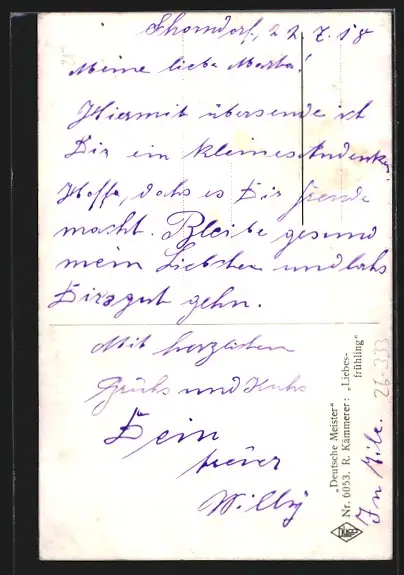 Thorndorf, 22.7.18
Meine liebe Marta!
Hiermit übersende ich
Dir ein kleines Andenken
Hoffe, dahs es Dir freude
macht. Bleibe gesund
mein Liebsten und lahs
Dirs gut gehn.
Mit herzlichen
Grühs und Kuhs
Dein
treuer
Willy
In Eile.
26-333
„Deutsche Meister"
Nr. 6053. R. Kämmerer: „Liebes-
frühling"